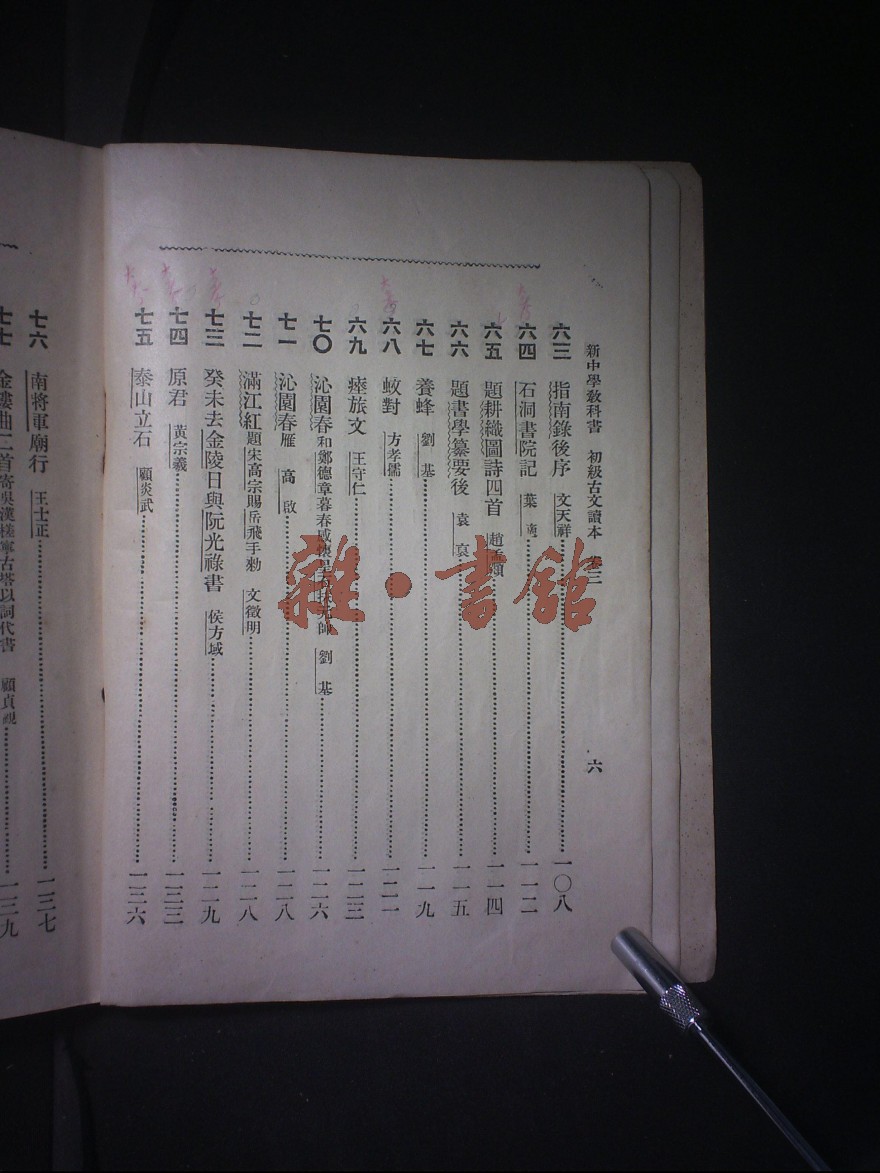 新中學教科書 初級古文讀本 卷三 六
六三 指南錄後序 文天祥 一〇八
六四 石洞書院記 葉適 一一二
六五 題耕織圖詩四首 趙孟頫 一一四
六六 題書學纂要後 袁裒 一一五
六七 養蜂 劉基 一一九
六八 蚊對 方孝儒 一二一
六九 瘞旅文 王守仁 一二三
七〇 沁園春和鄭德章暮春感懷呈 元帥 劉基 一二六
七一 沁園春雁 高啟 一二八
七二 滿江紅題宋高宗賜岳飛手勅 文徵明 一二八
七三 癸未去金陵日與阮光祿書 侯方域 一二九
七四 原君 黃宗羲 一三三
七五 泰山立石 顧炎武 一三六
七六 南將軍廟行 王士正 一三七
七七 金縷曲二首寄吳漢槎寧古塔以詞代書 顧貞觀 一三九
雜·書館